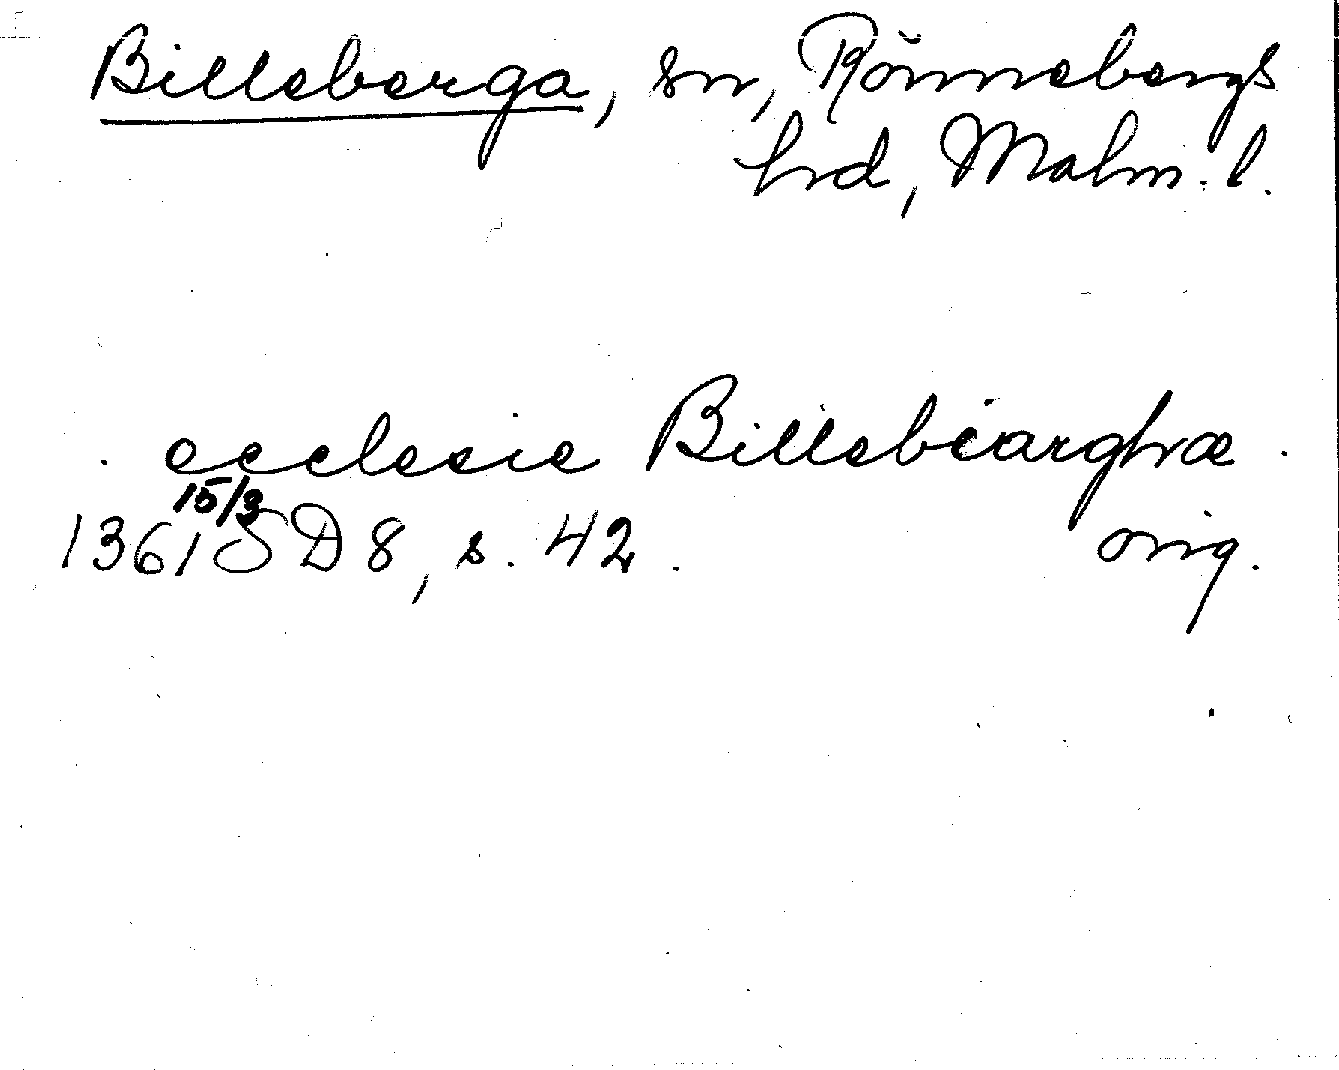 Billeberga, sn, Rönnebergs
hrd, Malm. l.
ecclesie Billebiarghæ
15/3
1361 SD 8, s. 42. orig.